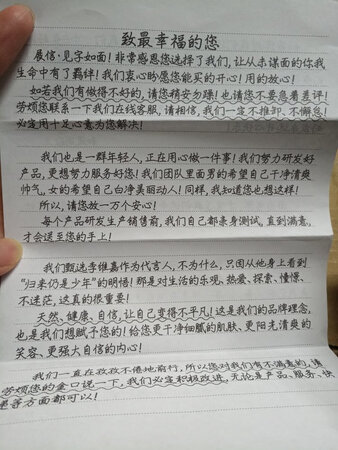 致最幸福的您
展信·见字如面!非常感恩您选择了我们,让从未谋面的你我
生命中有了羁绊!我们衷心盼愿您能买的开心!用的放心!
如若我们有做得不好的,请您稍安勿躁!也请您不要急着差评!
劳烦您联系一下我们在线客服,请相信,我们一定不推卸、不懈怠!
必定用十足心意为您解决!
我们也是一群年轻人,正在用心做一件事!我们努力研发好
产品,更想努力服务好您!我们团队里面男的希望自己干净清爽
帅气,女的希望自己白净美丽动人!同样,我知道您也想这样!
所以,请您放一万个安心!
每个产品研发生产销售前,我们自己都亲身测试。直到满意,
才会送至您的手上!
我们甄选李维嘉作为代言人,不为什么,只因从他身上看到
“归来仍是少年”的明悟!那是对生活的乐观、热爱、探索、憧憬、
不迷茫,这真的很重要!
天然、健康、自信,让自己变得不平凡!这是我们的品牌理念,
也是我们想赋予您的!给您更干净细腻的肌肤、更阳光清爽的
笑容、更强大自信的内心!
我们一直在孜孜不倦地前行,所以您对我们有不满意的,请
劳烦您的金口说一下,我们必定积极改进,无论是产品、服务、快
递等方面都可以!